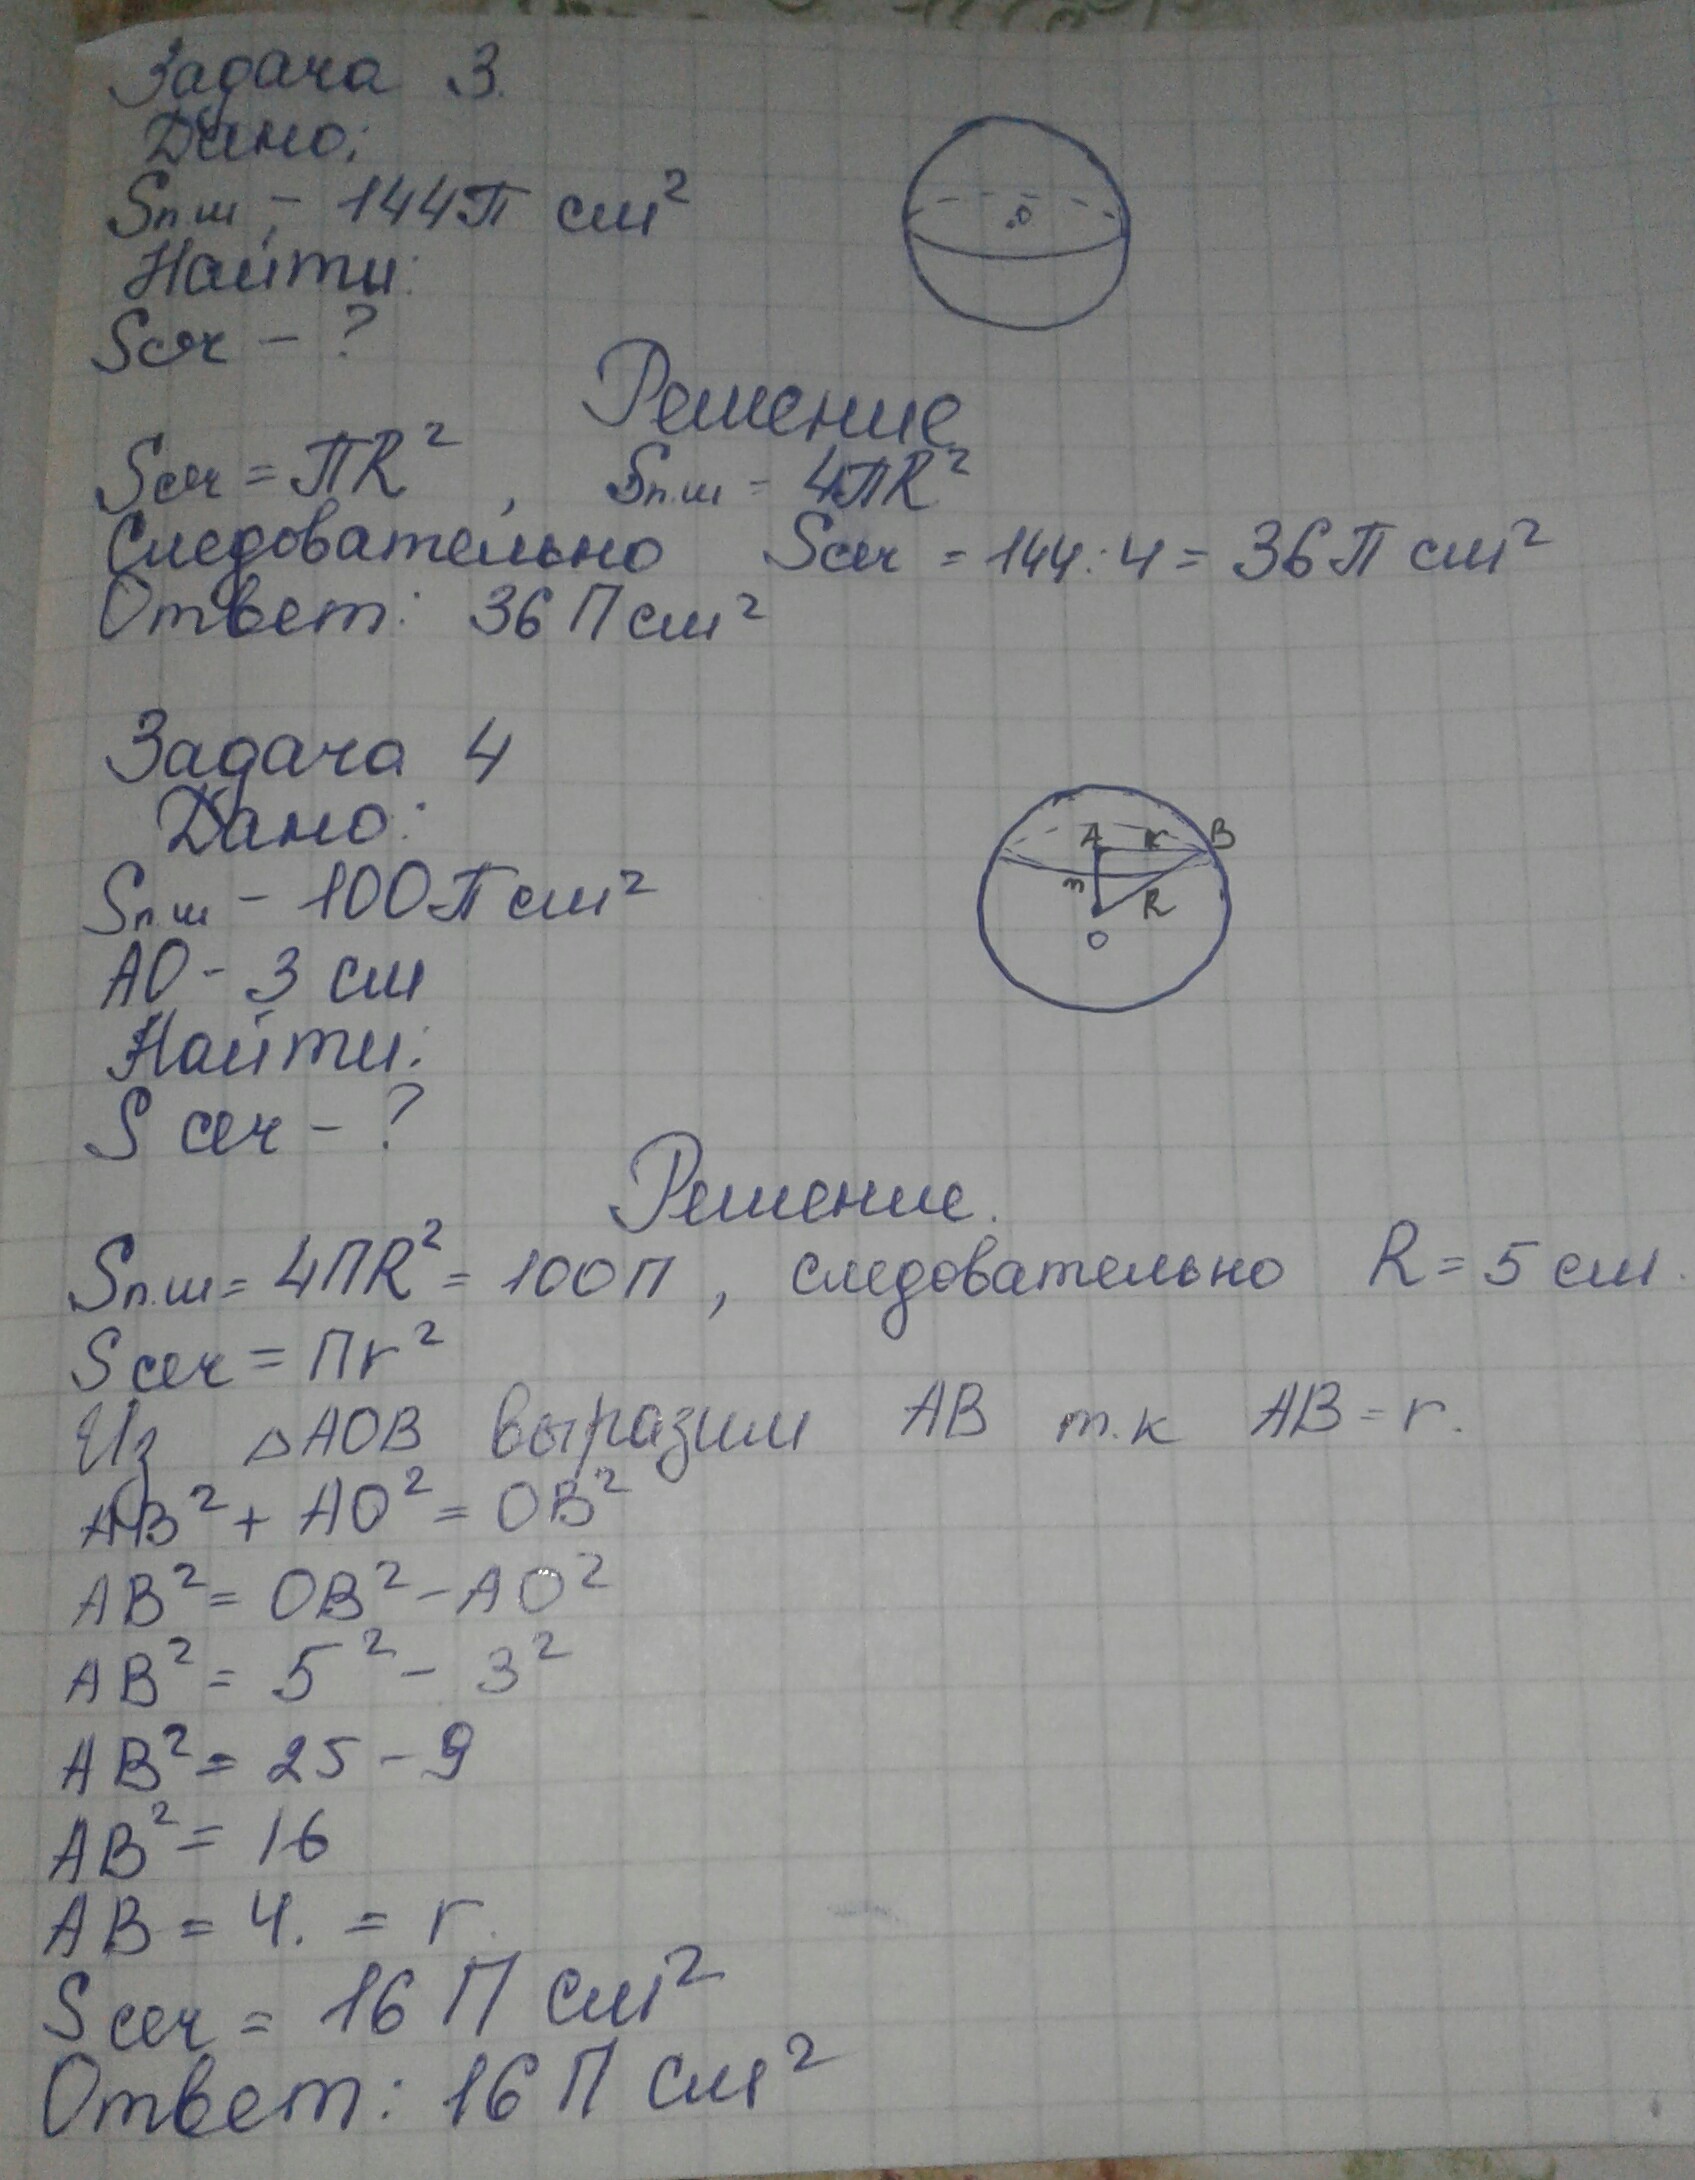 Задача 3.
Дано:
Sп.ш - 144П см²
Найти:
Sсеч - ?
O
Решение
Sсеч = ПR² , Sп.ш = 4ПR²
Следовательно Sсеч = 144 : 4 = 36П см²
Ответ: 36 П см²
Задача 4
Дано:
Sп.ш - 100П см²
АО - 3 см
Найти:
S сеч - ?
A r B
m R
O
Решение.
Sп.ш = 4ПR² = 100П , следовательно R = 5 см.
S сеч = Пr²
Из △АОВ выразим АВ т.к АВ = r.
АВ² + АО² = ОВ²
АВ² = ОВ² - АО²
АВ² = 5² - 3²
АВ² = 25 - 9
АВ² = 16
АВ = 4. = r.
S сеч = 16 П см²
Ответ: 16 П см²